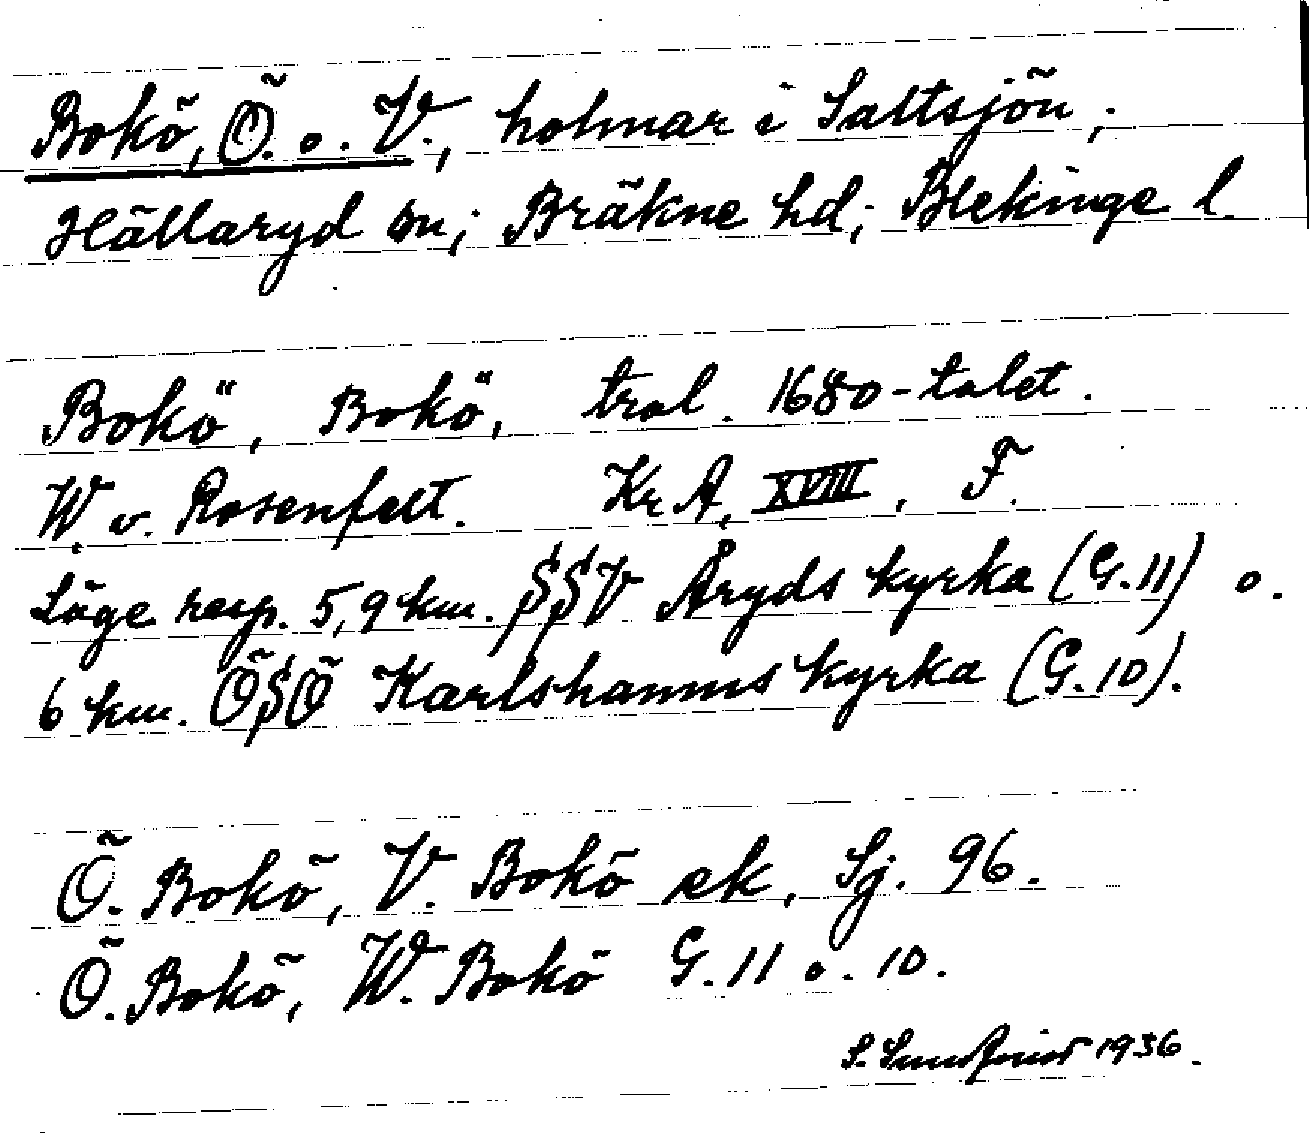 Bokö, Ö. o. V., holmar i Saltsjön,
Hällaryd sn; Bräkne hd; Blekinge l.
Bokö, Bokö, trol. 1680-talet.
W. v. Rosenfelt. Kr A, XVIII, F.
Läge resp. 5,9 km. SSV Åryds kyrka (G.11) o.
6 km. ÖSÖ Karlshamns kyrka (G.10).
Ö. Bokö, V. Bokö ek, Sj. 96.
Ö. Bokö, W. Bokö G.11 o. 10.
S. 1936.